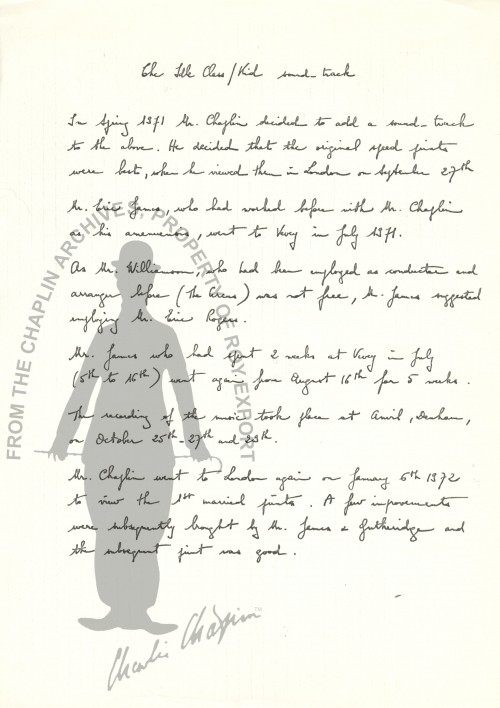 The Idle Class/Kid sound-track
In Spring 1971 Mr. Chaplin decided to add a sound-track
to the above. He decided that the original speed prints
were best, when he viewed them in London on September 27th
Mr. Eric James, who had worked before with Mr. Chaplin
as his amanuensis, went to Vevey in July 1971.
As Mr. Williamson, who had been employed as conductor and
arranger before (The Circus) was not free, Mr. James suggested
employing Mr. Eric Rogers.
Mr. James who had spent 2 weeks at Vevey in July
(5th to 16th) went again from August 16th for 5 weeks.
The recording of the music took place at Anvil, Denham,
on October 25th - 27th and 29th.
Mr. Chaplin went to London again on January 6th 1972
to view the 1st married prints. A few improvements
were subsequently brought by Mr. James & Gutheridge and
the subsequent print was good.
FROM THE CHAPLIN ARCHIVES, PROPERTY OF ROY EXPORT
Charlie Chaplin™